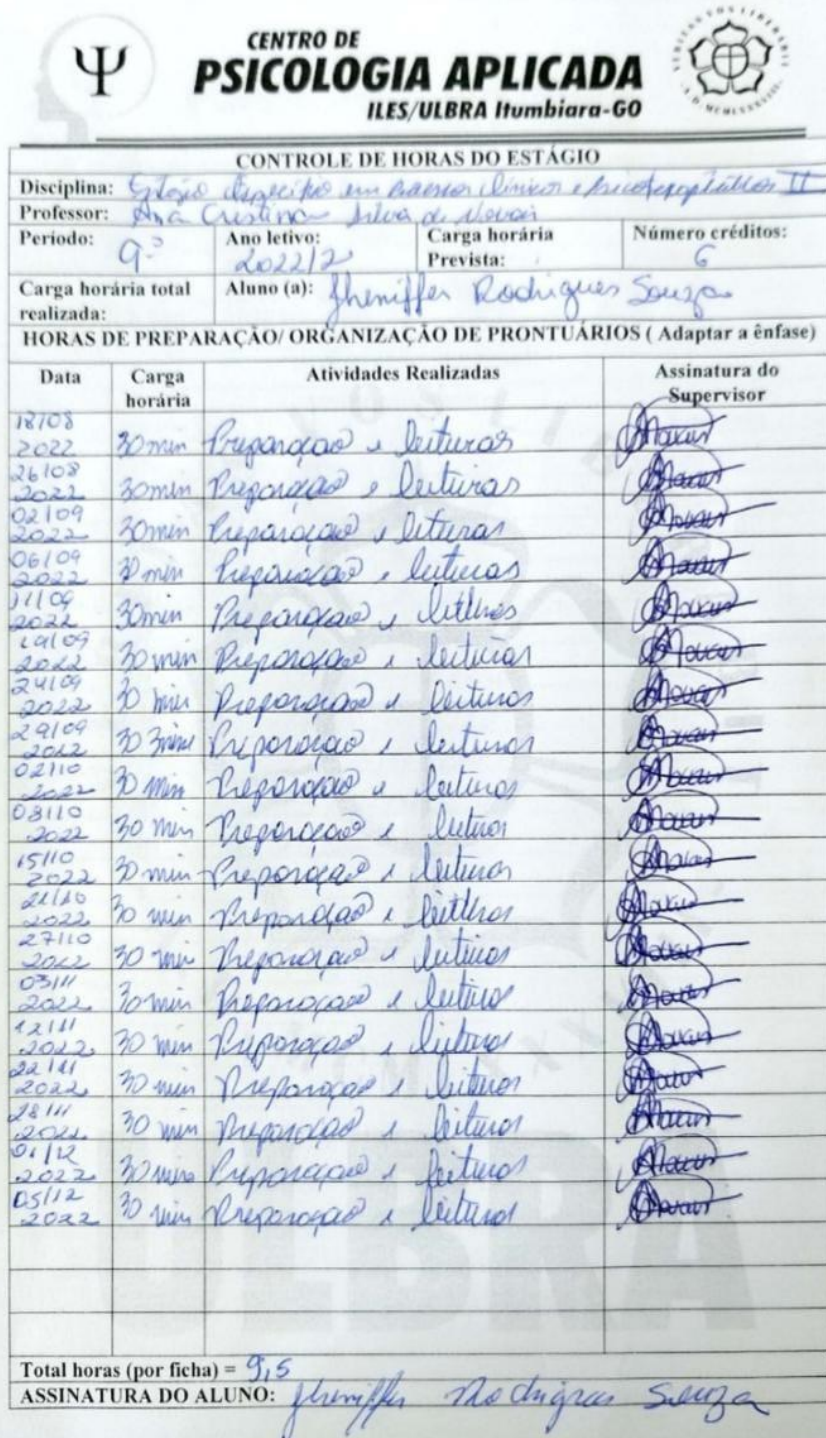 Ψ
CENTRO DE
PSICOLOGIA APLICADA
ILES/ULBRA Itumbiara-GO
CONTROLE DE HORAS DO ESTÁGIO
Disciplina: Estágio Específico em Processos Clínicos e Psicoterapêuticos II
Professor: Ana Cristina Silva de Novais
Período: 9º Ano letivo: 2022/2 Carga horária Prevista: Número créditos: 6
Carga horária total realizada: Aluno (a): Jheniffer Rodrigues Souza
HORAS DE PREPARAÇÃO/ ORGANIZAÇÃO DE PRONTUÁRIOS ( Adaptar a ênfase)
Data Carga horária Atividades Realizadas Assinatura do Supervisor
18/08 2022 30 min Preparação e leituras
26/08 2022 30 min Preparação e leituras
02/09 2022 30 min Preparação e leituras
06/09 2022 30 min Preparação e leituras
11/09 2022 30 min Preparação e leituras
19/09 2022 30 min Preparação e leituras
24/09 2022 30 min Preparação e leituras
29/09 2022 30 Preparação e leituras
02/10 2022 30 min Preparação e leituras
08/10 2022 30 min Preparação e leituras
15/10 2022 30 min Preparação e leituras
21/10 2022 30 min Preparação e leituras
27/10 2022 30 min Preparação e leituras
03/11 2022 30 min Preparação e leituras
12/11 2022 30 min Preparação e leituras
22/11 2022 30 min Preparação e leituras
28/11 2022 30 min Preparação e leituras
01/12 2022 30 min Preparação e leituras
05/12 2022 30 min Preparação e leituras
ULBRA
Total horas (por ficha) = 9,5
ASSINATURA DO ALUNO: Jheniffer Rodrigues Souza